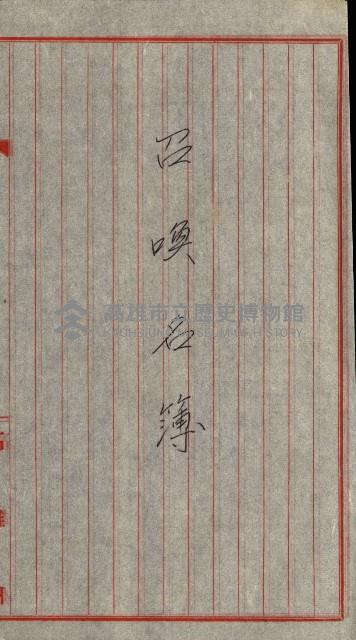 召喚名簿
高雄市立歷史博物館
KAOHSIUNG MUSEUM OF HISTORY